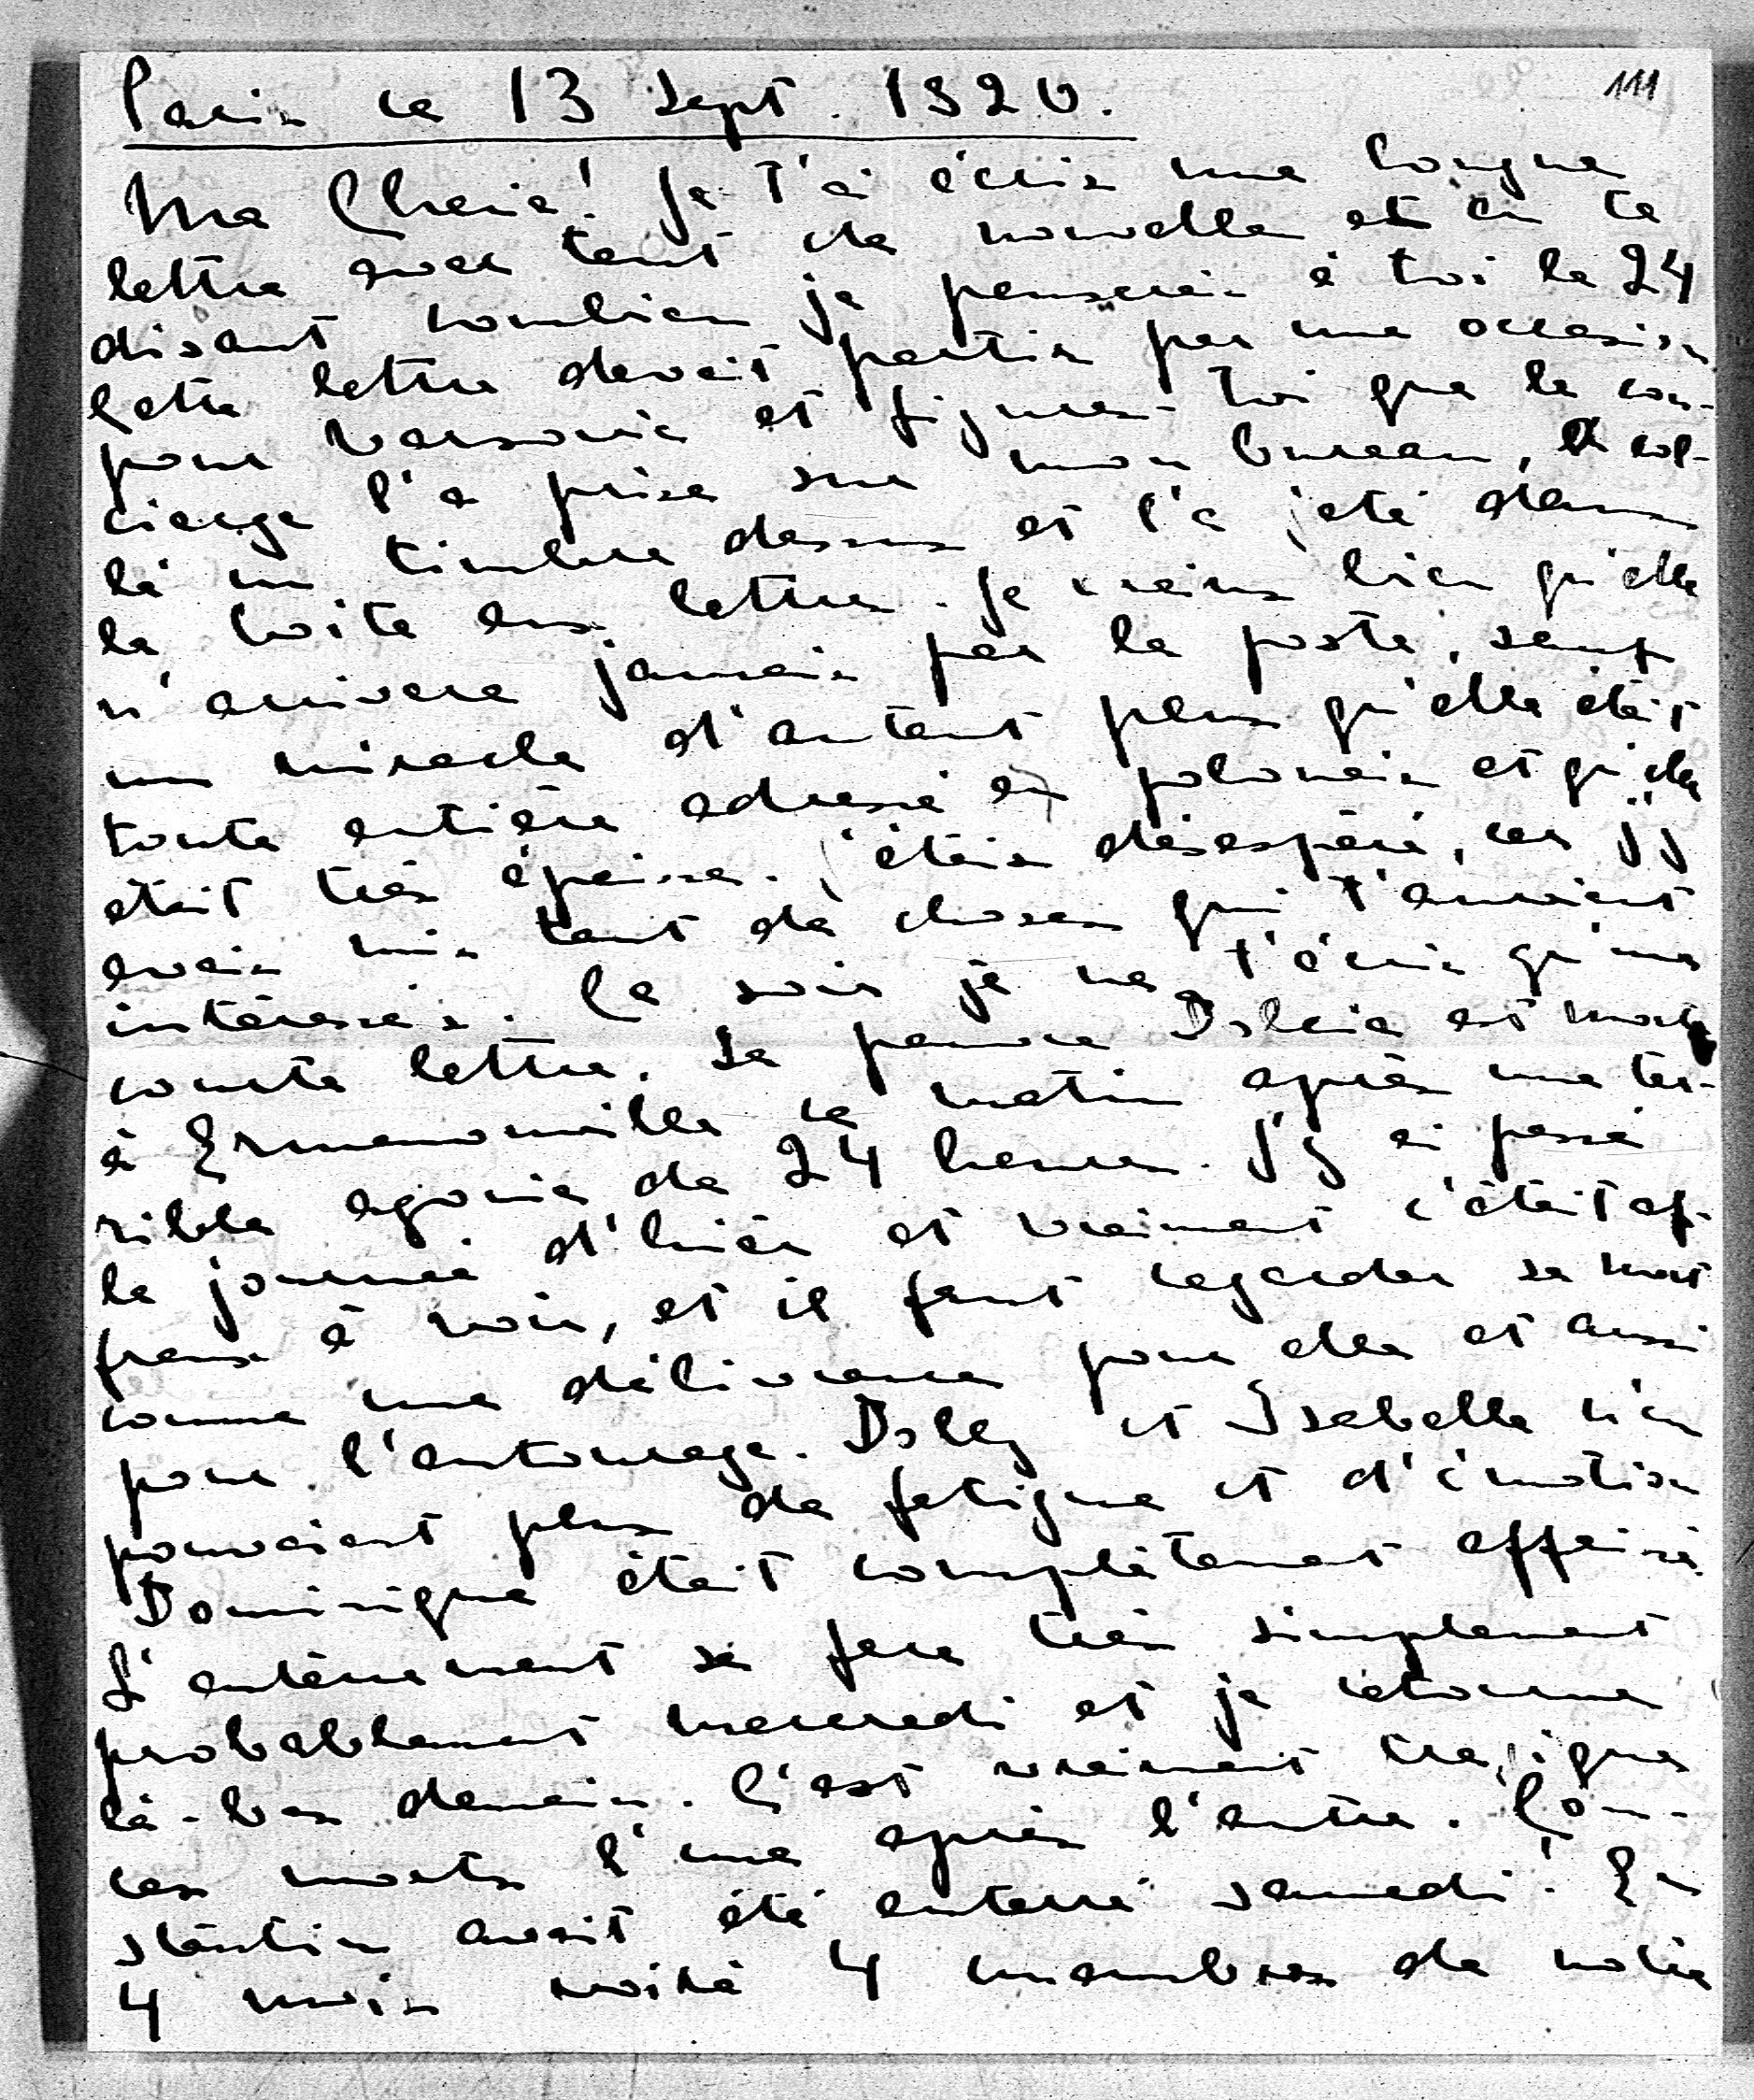 Paris ce 13 Sept. 1920.
111
Ma Chérie! Je t'ai écris une longue
lettre avec tant de nouvelles et en te
disant combien je penserais à toi le 24
Cette lettre devait partir par une occasion
pour Varsovie et figures-toi que la con-
cierge l'a prise sur mon bureau, a col-
lé un timbre dessus et l'a jeté dans
la boite aux lettres. Je crains bien qu'elle
n'arrivera jamais par la poste, sauf
un miracle d'autant plus qu'elle était
toute entière adressé en polonais et qu'elle
était très épaisse. j'étais désespéré, car j'y
avais mis tant de choses qui t'auraient
intéressés. Ce soir je ne t'écris qu'une
courte lettre. La pauvre Dolcia est morte
à Ermenonville ce matin après une ter-
rible agonie de 24 heures. J'y ai passé
la journée d'hier et vraiment c'était af-
freux à voir, et il faut regarder sa mort
comme une délivrance pour elle et aussi
pour l'entourage. Doly et Isabelle n'en
pouvaient plus de fatigue et d'émotion
Dominique était complètement affaissé.
L'entèrrement se fera très simplement
probablement mercredi et je retourne
là-bas demain. C'est vraiment tragique
ces morts l'une après l'autre. Con-
stantin avait été enterré samedi! En
4 mois voilà 4 membres de notre